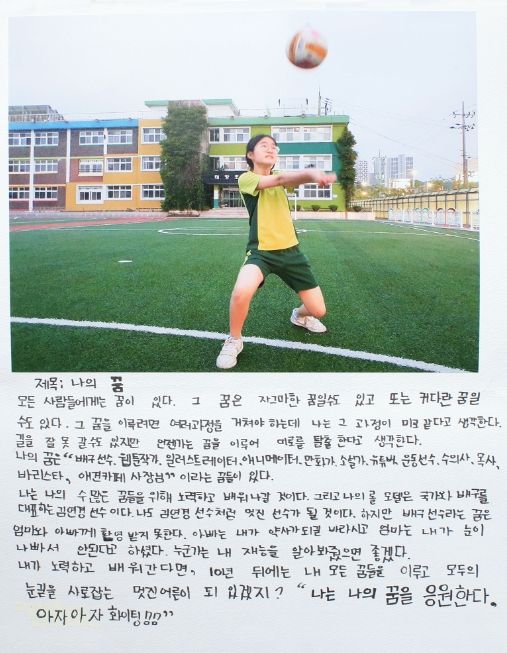 제목: 나의 꿈
모든 사람들에게는 꿈이 있다. 그 꿈은 자그마한 꿈일수도 있고 또는 커다란 꿈일
수도 있다. 그 꿈을 이루려면 여러과정을 거쳐야 하는데 나는 그 과정이 미로 같다고 생각한다.
길을 잘 못 갈수도 있지만 언젠가는 꿈을 이루어 미로를 탈출 한다고 생각한다.
나의 꿈은 "배구선수, 웹툰작가, 일러스트레이터, 애니메이터, 만화가, 소설가, 유튜버, 운동선수, 수의사, 목사,
바리스타, 애견카페 사장님" 이라는 꿈들이 있다.
나는 나의 수많은 꿈들을 위해 노력하고 배워나갈 것이다. 그리고 나의 롤 모델은 국가와 배구를
대표하는 김연경 선수이다. 나도 김연경 선수처럼 멋진 선수가 될 것이다. 하지만 배구선수라는 꿈은
엄마와 아빠께 환영 받지 못한다. 아빠는 내가 약사가 되길 바라시고 엄마는 내가 눈이
나빠서 안된다고 하셨다. 누군가는 내 재능을 알아봐줬으면 좋겠다.
내가 노력하고 배워간다면, 10년 뒤에는 내 모든 꿈들을 이루고 모두의
눈길을 사로잡는 멋진어른이 되 있겠지? "나는 나의 꿈을 응원한다.
아자아자 화이팅